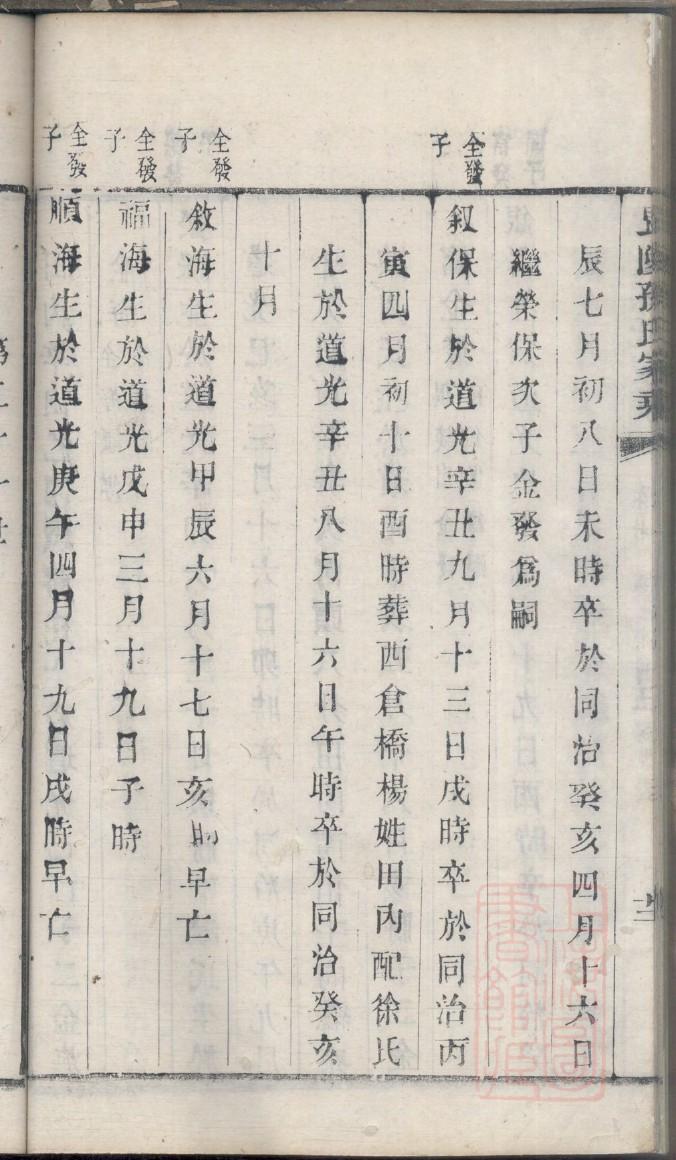 暨陽孫氏家乘
辰七月初八日未時卒於同治癸亥四月十六日
繼榮保次子金發爲嗣
全發子
叙保生於道光辛丑九月十三日戌時卒於同治丙
寅四月初十日酉時葬西倉橋楊姓田內配徐氏
生於道光辛丑八月十六日午時卒於同治癸亥
十月
全發子
敘海生於道光甲辰六月十七日亥時早亡
全發子
福海生於道光戊申三月十九日子時
全發子
順海生於道光庚午四月十九日戌時早亡